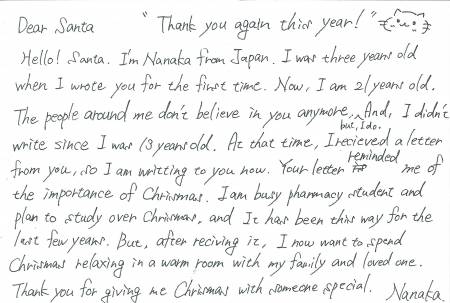 Dear Santa " Thank you again this year! "
Hello! Santa. I'm Nanaka from Japan. I was three years old
when I wrote you for the first time. Now, I am 21 years old.
The people around me don't believe in you anymore, but, I do. And, I didn't
write since I was 13 years old. At that time, I recieved a letter
from you, so I am writting to you now. Your letter reminded me of
the importance of Chrismas. I am busy pharmacy student and
plan to study over Chrismas, and It has been this way for the
last few years. But, after reciving it, I now want to spend
Chrismas relaxing in a warm room with my family and loved one.
Thank you for giving me Chrismas with someone special. Nanaka